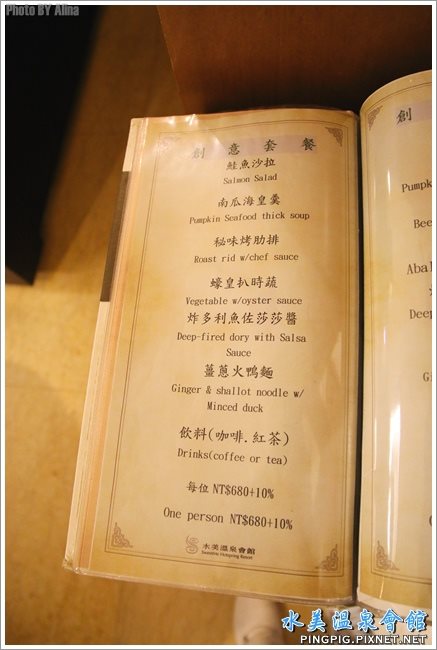 Photo BY Alina
創意套餐
鮭魚沙拉
Salmon Salad
南瓜海皇羹
Pumpkin Seafood thick soup
秘味烤肋排
Roast rid w/chef sauce
蠔皇扒時蔬
Vegetable w/oyster sauce
炸多利魚佐莎莎醬
Deep-fired dory with Salsa
Sauce
薑蔥火鴨麵
Ginger & shallot noodle w/
Minced duck
飲料(咖啡.紅茶)
Drinks(coffee or tea)
每位 NT$680+10%
One person NT$680+10%
水美溫泉會館
Sweetme Hotspring Resort
創
Pumpk
Bee
Abal
Deep
Gi
水美溫泉會館
PINGPIG.PIXNET.NET